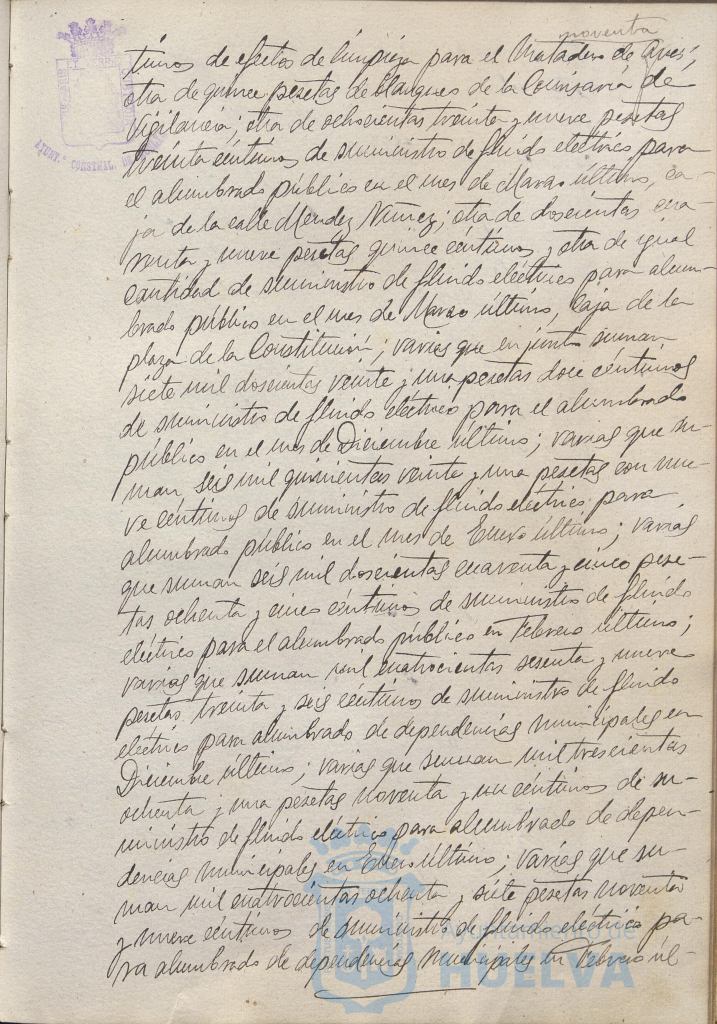 noventa
timos de efectos de limpieza para el Matadero de Aves,
otra de quince pesetas de blanqueo de la Comisaría de
Vigilancia; otra de ochocientas treinta y nueve pesetas
treinta céntimos de suministro de fluido eléctrico para
el alumbrado público en el mes de Marzo último, ca-
ja de la calle Mendez Núñez; otra de doscientas cua-
renta y nueve pesetas quince céntimos y otra de igual
cantidad de suministro de fluido eléctrico para alum-
brado público en el mes de Marzo último, Caja de la
plaza de la Constitución; varias que en junto suman
siete mil doscientas veinte y una pesetas doce céntimos
de suministro de fluido eléctrico para el alumbrado
público en el mes de Diciembre último; varias que su-
man seis mil quinientas veinte y una pesetas con nue-
ve céntimos de suministro de fluido eléctrico para
alumbrado público en el mes de Enero último; varias
que suman seis mil doscientas cuarenta y cinco pese-
tas ochenta y cinco céntimos de suministro de fluido
eléctrico para el alumbrado público en Febrero último;
varias que suman mil cuatrocientas sesenta y nueve
pesetas treinta y seis céntimos de suministro de fluido
eléctrico para alumbrado de dependencias municipales en
Diciembre último; varias que suman mil trescientas
ochenta y una pesetas noventa y un céntimos de su-
ministro de fluido eléctrico para alumbrado de depen-
dencias municipales en Enero último; varias que su-
man mil cuatrocientas ochenta y siete pesetas noventa
y nueve céntimos de suministro de fluido eléctrico pa-
ra alumbrado de dependencias municipales en Febrero úl-
AYUNT.º CONSTNAL.
Ayuntamiento de
HUELVA